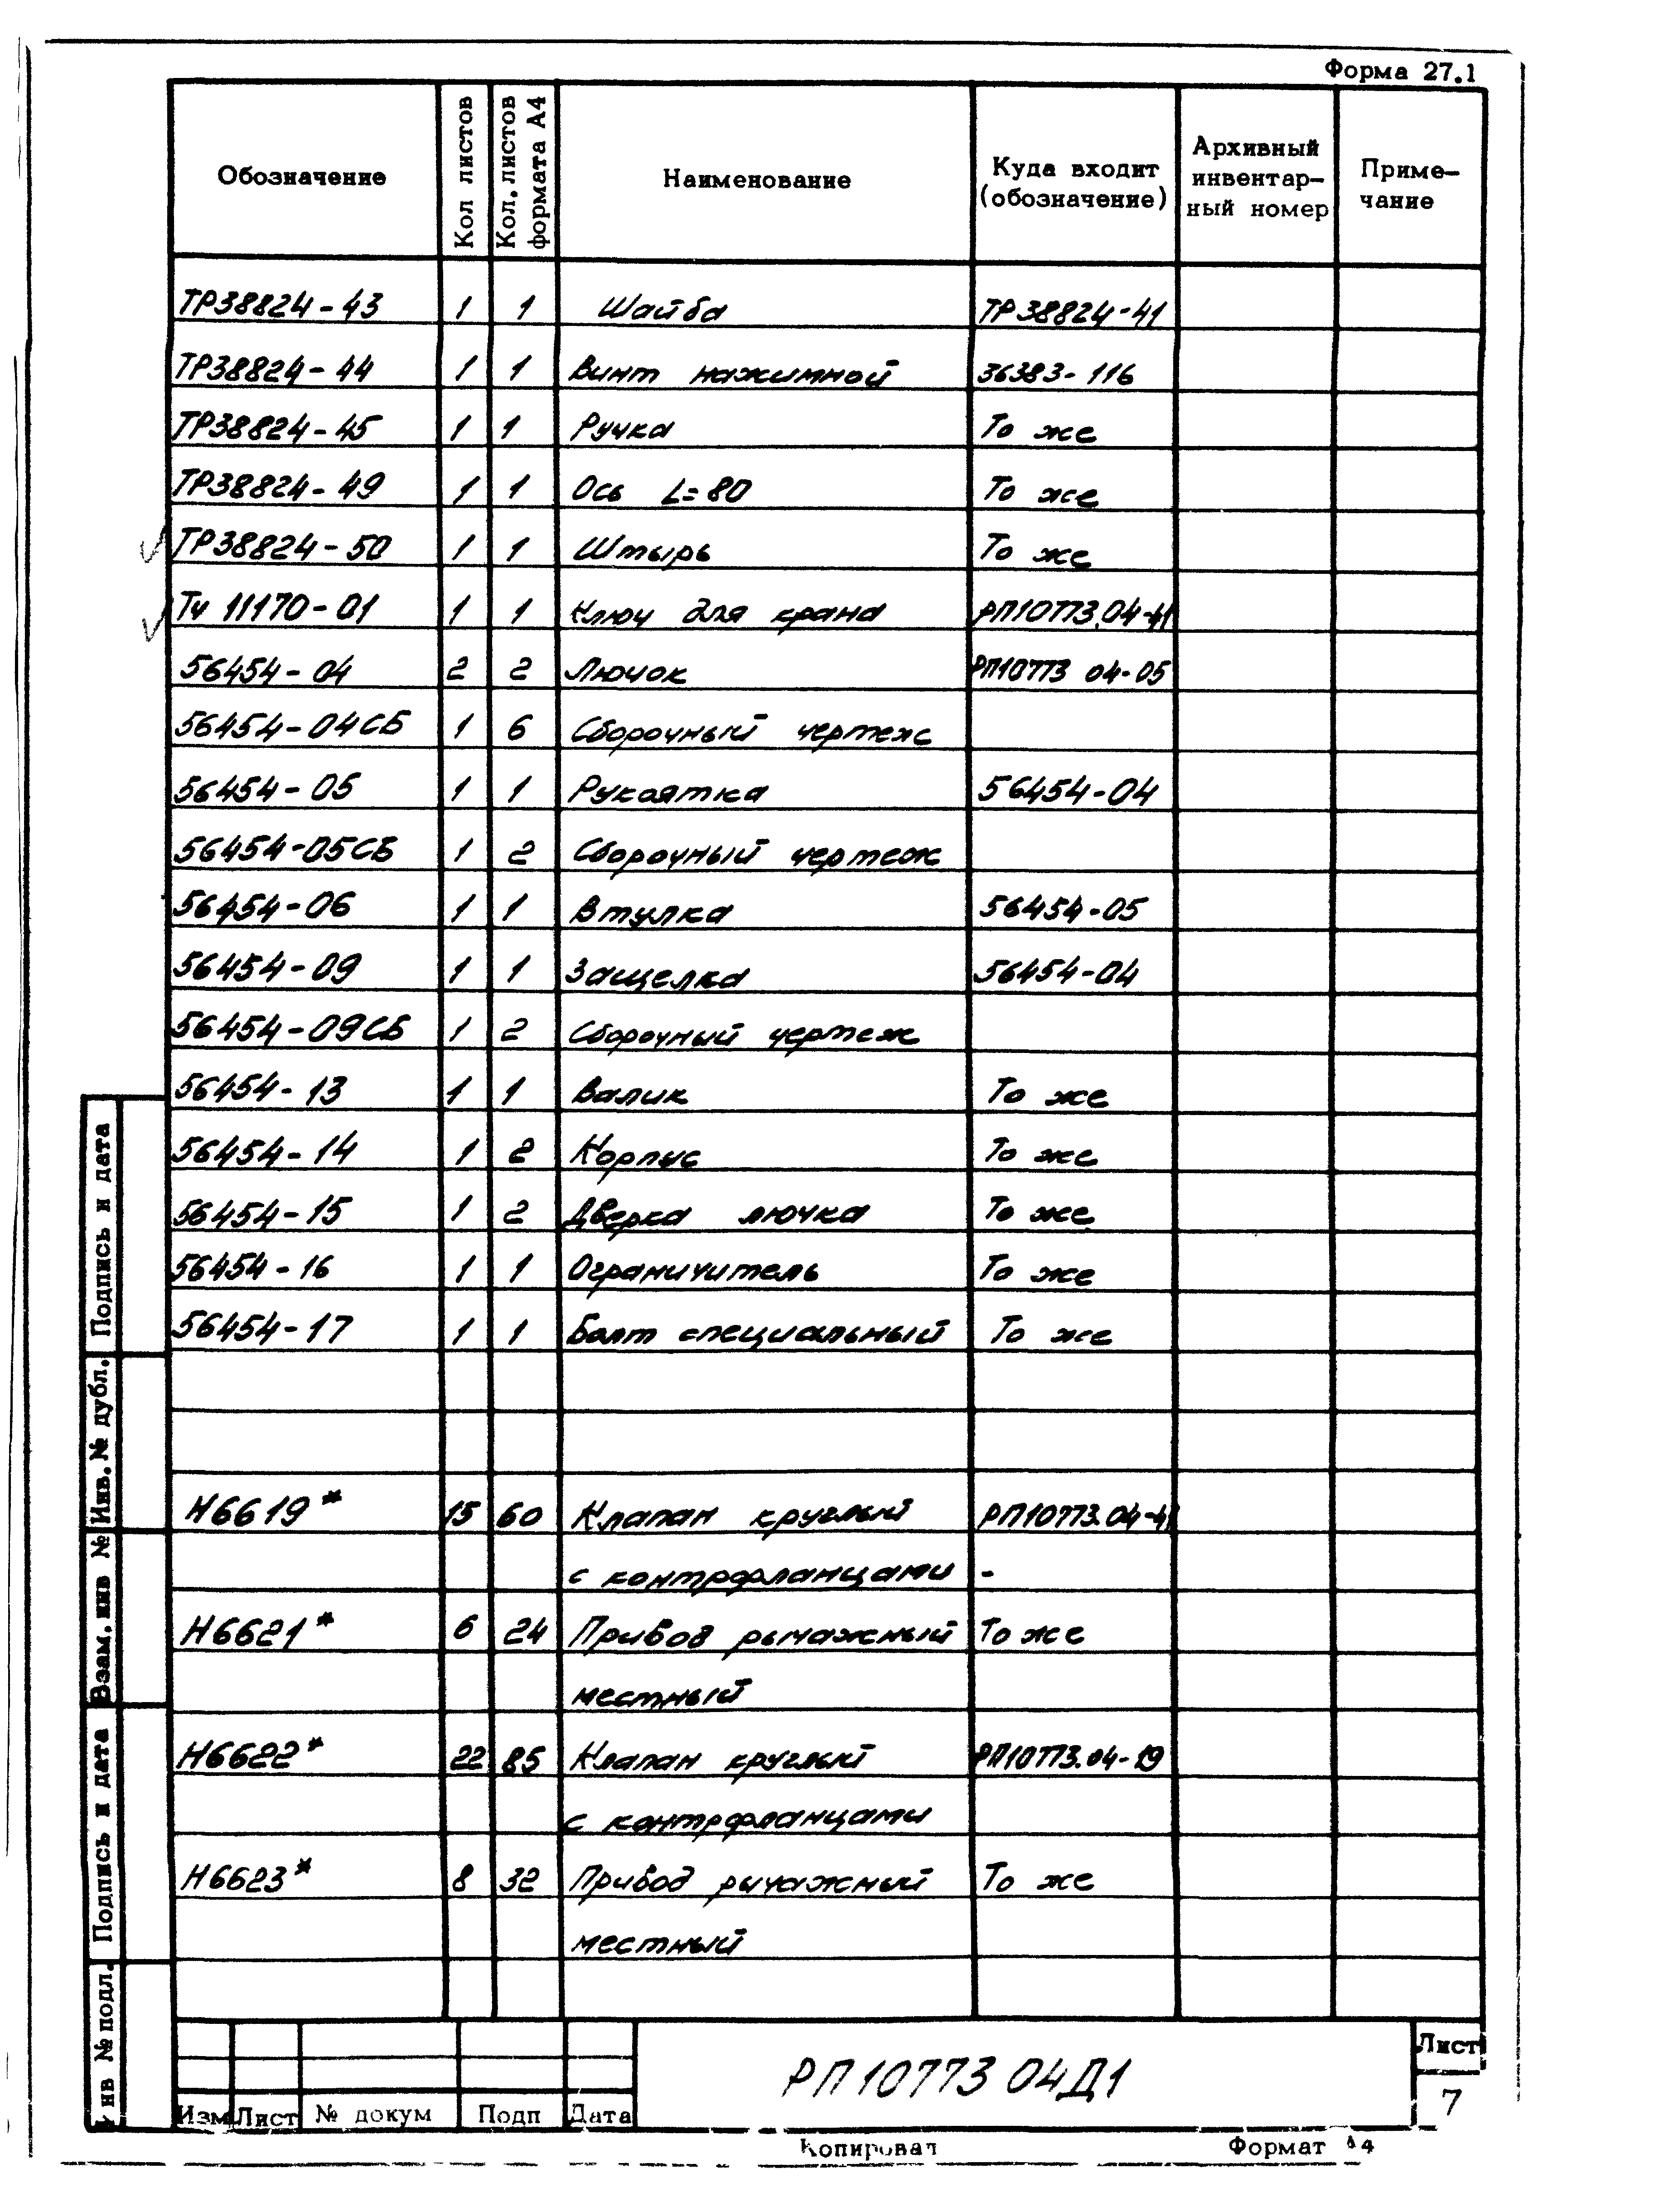 Форма 27.1
Обозначение
Кол листов
Кол. листов
формата А4
Наименование
Куда входит
(обозначение)
Архивный
инвентар-
ный номер
Приме-
чание
ТР38824-43 1 1 Шайба ТР38824-41
ТР38824-44 1 1 Винт нажимной 36383-116
ТР38824-45 1 1 Ручка То же
ТР38824-49 1 1 Ось L=80 То же
ТР38824-50 1 1 Штырь То же
Тч 11170-01 1 1 Ключ для крана РП10773.04-41
56454-04 2 2 Лючок РП10773 04-05
56454-04СБ 1 6 Сборочный чертеж
56454-05 1 1 Рукоятка 56454-04
56454-05СБ 1 2 Сборочный чертеж
56454-06 1 1 Втулка 56454-05
56454-09 1 1 Защелка 56454-04
56454-09СБ 1 2 Сборочный чертеж
56454-13 1 1 Валик То же
56454-14 1 2 Корпус То же
56454-15 1 2 Дверка лючка То же
56454-16 1 1 Ограничитель То же
56454-17 1 1 Болт специальный То же
Н6619* 15 60 Клапан круглый РП10773.04-41
с контрфланцами -
Н6621* 6 24 Привод рычажный То же
местный
Н6622* 22 85 Клапан круглый РП10773.04-19
с контрфланцами
Н6623* 8 32 Привод рычажный То же
местный
Подпись и дата
Инв. № дубл.
Взам. инв №
Подпись и дата
нв № подл.
Изм Лист № докум Подп Дата
РП10773 04Д1
Лист
7
Копировал
Формат А4